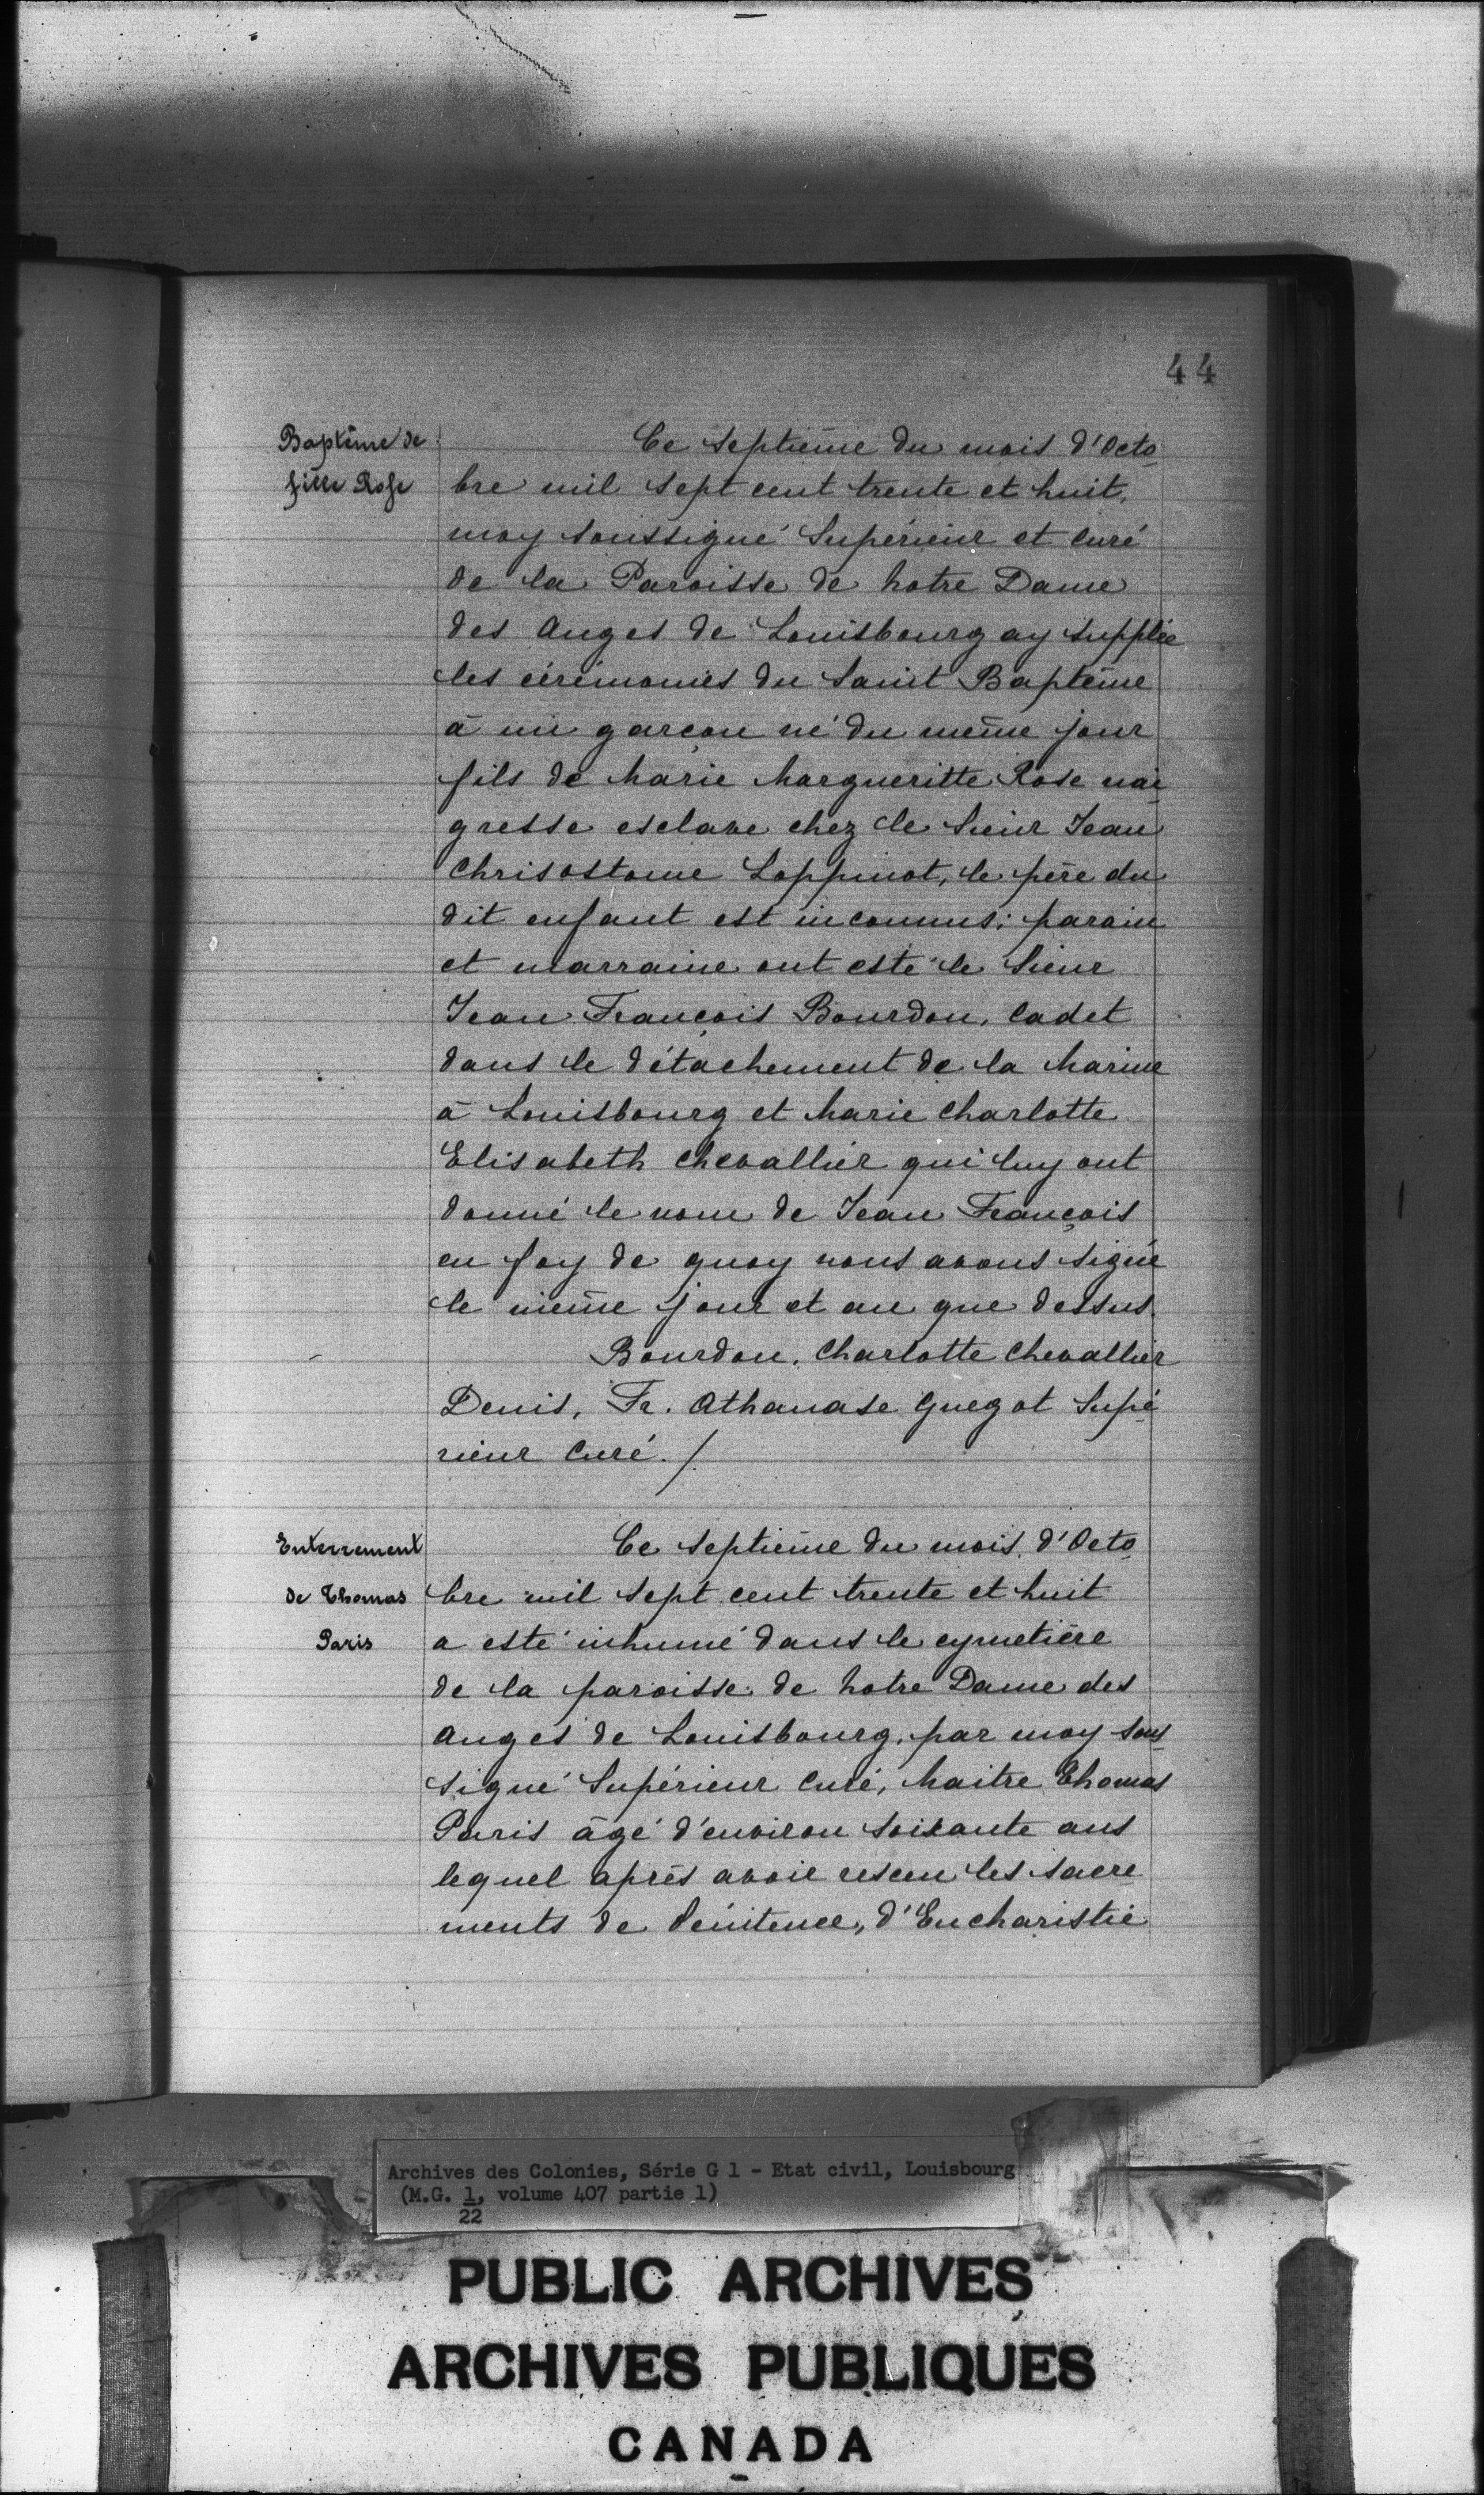 44
Baptême de
fille Rose
Ce septième du mois d'Octo
bre mil sept cent trente et huit,
moy soussigné Supérieur et curé
de la Paroisse de Notre Dame
des Anges de Louisbourg ay supplée
les cérémonies du Saint Baptême
à un garçon né du même jour
fils de Marie Margueritte Rose nai
gresse esclave chez le Sieur Jean
Chrisostome Loppinot, le père du
dit enfant est inconnus; parain
et marraine ont esté le Sieur
Jean François Bourdon, Cadet
dans le détachement de la Marine
à Louisbourg et Marie Charlotte
Elisabeth Chevallier qui luy ont
donné le nom de Jean François
en foy de quoy nous avons signé
le même jour et an que dessus.
Bourdon, Charlotte Chevallier
Denis, Fr. Athanase Guegot Supé
rieur Curé./.
Enterrement
de Thomas
Paris
Ce septième du mois d'Octo
bre mil sept cent trente et huit
a esté inhumé dans le cymetière
de la paroisse de Notre Dame des
Anges de Louisbourg, par moy sous
signé Supérieur Curé, Maitre Thomas
Paris âgé d'environ soixante ans
lequel après avoir resceu les sacre
ments de Pénitence, d'Eucharistie
Archives des Colonies, Série G 1 - Etat civil, Louisbourg
(M.G. 1, volume 407 partie 1)
22
PUBLIC ARCHIVES
ARCHIVES PUBLIQUES
CANADA